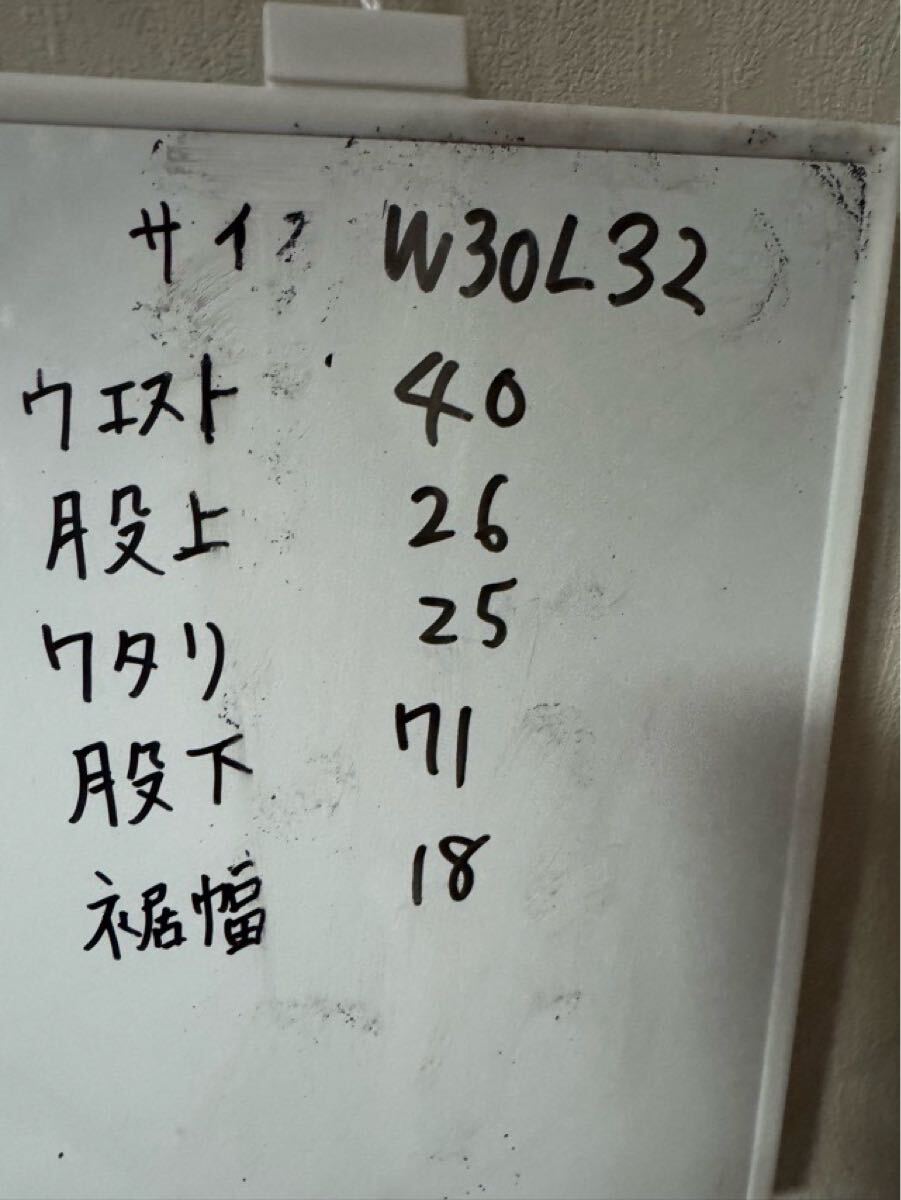 サイズ W30L32
ウエスト 40
股上 26
ワタリ 25
股下 71
裾幅 18